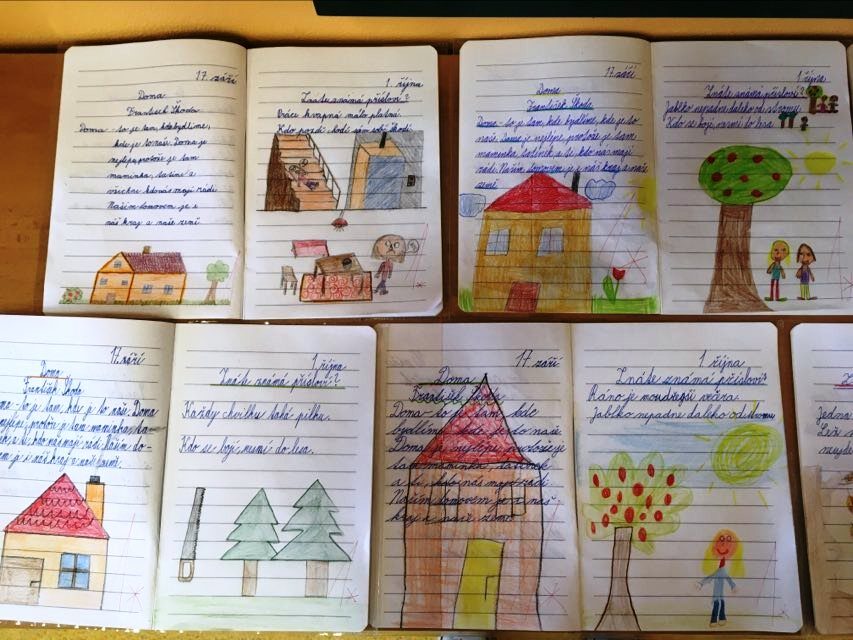 17. září
Doma
František Škoda
Doma - to je tam, kde bydlíme,
kde je to naše. Doma je
nejlépe, protože je tam
maminka, tatínek a
všichni, kdo nás mají rádi.
Naším domovem je i
náš kraj a naše země
1. října
Znáte známá přísloví?
Práce kvapná málo platná.
Kdo pozdě chodí, sám sobě škodí
17. září
Doma
František Škoda
Doma - to je tam, kde bydlíme, kde je to
naše. Doma je nejlépe, protože je tam
maminka, tatínek a ti, kdo nás mají
rádi. Naším domovem je i náš kraj a naše
země
1. října
Znáte známá přísloví?
Jablko nepadne daleko od stromu
Kdo se bojí, nesmí do lesa.
17. září
Doma
František Škoda
to je tam, kde je to naše. Doma
je tam maminka, ta
a ti, kdo nás mají rádi. Naším do-
je i náš kraj a naše země.
1. října
Znáte známá přísloví?
Každý chvilku tahá pilku.
Kdo se bojí, nesmí do lesa.
17. září
Doma
František Škoda
Doma - to je tam, kde
bydlíme, kde je to naše
Doma je nejlépe, protože je
tam maminka, tatínek
a ti, kdo nás mají rádi
Naším domovem je i náš
kraj a naše země.
1. října
Znáte známá přísloví?
Ráno je moudřejší večera
Jablko nepadne daleko od stromu
Jedna
Leží